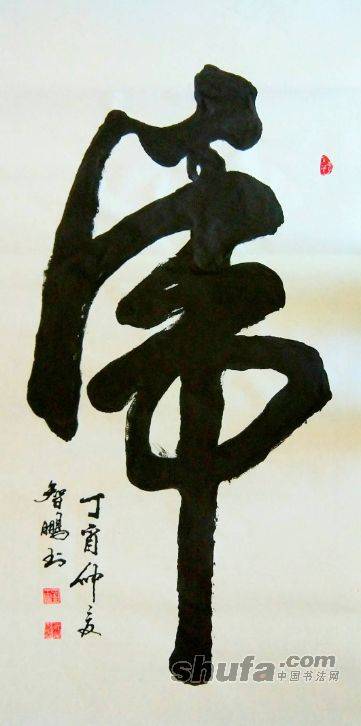 虎
丁酉仲夏
智鹏书
shufa.com
中国书法网